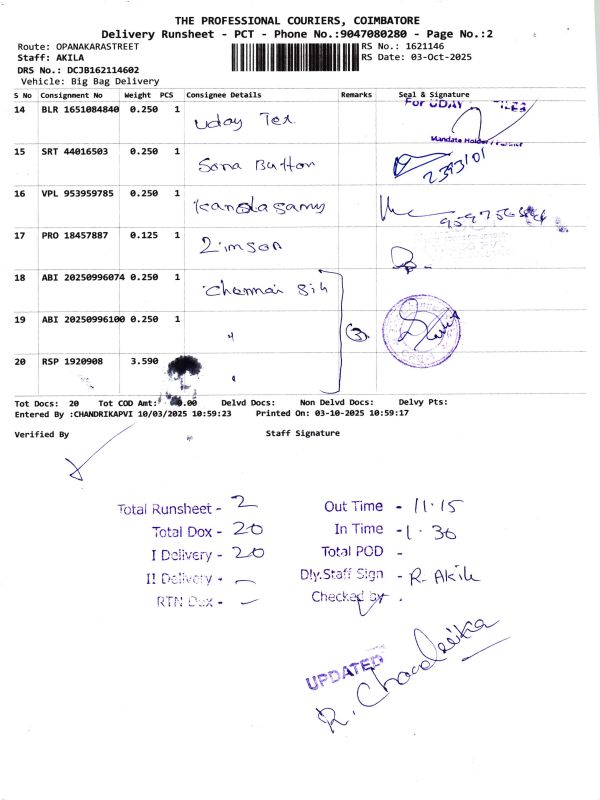 THE PROFESSIONAL COURIERS, COIMBATORE
Delivery Runsheet - PCT - Phone No.:9047080280 - Page No.:2
Route: OPANAKARASTREET RS No.: 1621146
Staff: AKILA RS Date: 03-Oct-2025
DRS No.: DCJB162114602
Vehicle: Big Bag Delivery
S No Consignment No Weight PCS Consignee Details Remarks Seal & Signature
14 BLR 1651084840 0.250 1 Uday Tex For UDAY TILES
Mandate Holder
15 SRT 44016503 0.250 1 Sona Button 2393101
16 VPL 953959785 0.250 1 Kandasamy
17 PRO 18457887 0.125 1 Zimson
18 ABI 20250996074 0.250 1 Chennai Silk
19 ABI 20250996100 0.250 1 " 3
20 RSP 1920908 3.590
Tot Docs: 20 Tot COD Amt: 0.00 Delvd Docs: Non Delvd Docs: Delvy Pts:
Entered By :CHANDRIKAPVI 10/03/2025 10:59:23 Printed On: 03-10-2025 10:59:17
Verified By Staff Signature
Total Runsheet - 2 Out Time - 11.15
Total Dox - 20 In Time - 1.30
I Delivery - 20 Total POD -
II Delivery - Dly.Staff Sign - R. Akila
RTN Dox - Checked by .
UPDATED
R. Chandrika